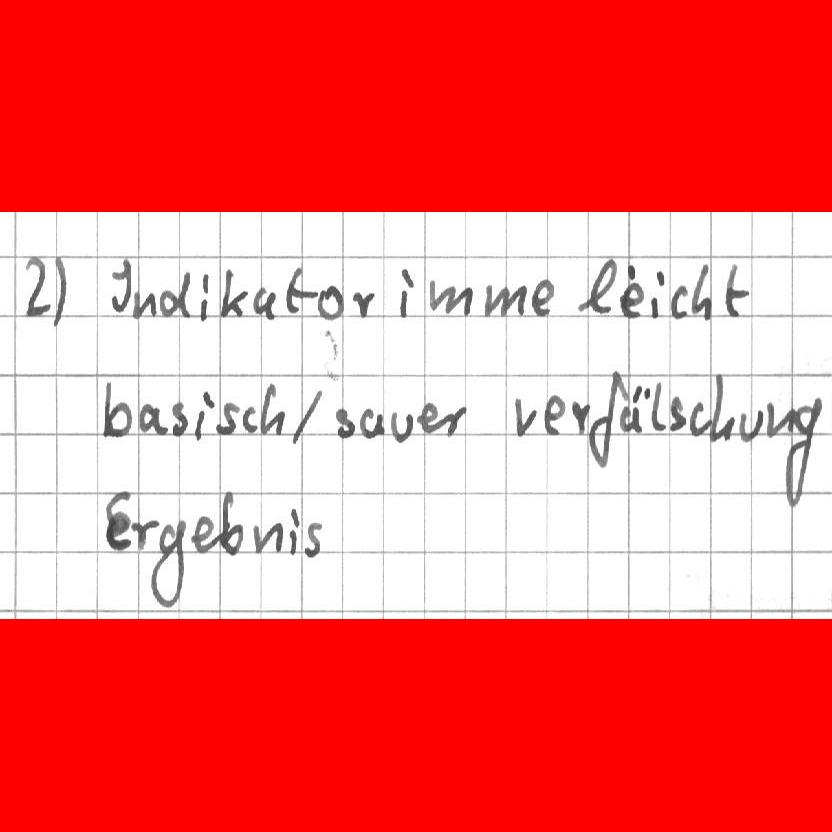 2) Indikator imme leicht
basisch/sauer verfälschung
Ergebnis